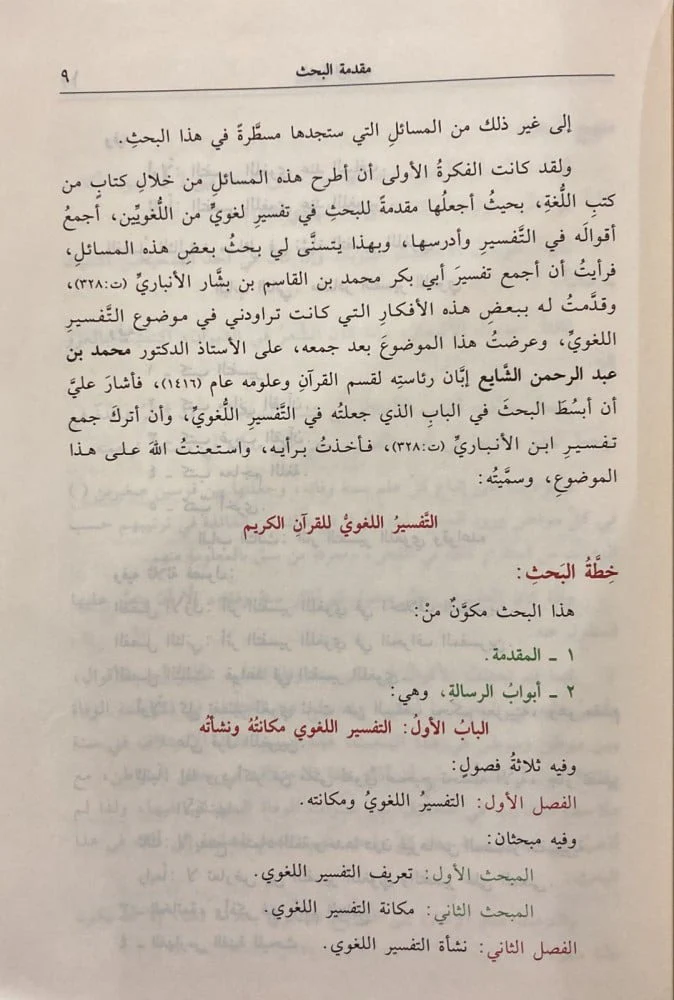 مقدمة البحث ٩
إلى غير ذلك من المسائلِ التي ستجدها مسطَّرةً في هذا البحثِ.
ولقد كانت الفكرةُ الأولى أن أطرح هذه المسائلِ من خلالِ كتابٍ من
كتبِ اللُّغةِ، بحيثُ أجعلُها مقدمةً للبحثِ في تفسيرِ لغويٍّ من اللُّغويِّين، أجمعُ
أقوالَه في التَّفسيرِ وأدرسها، وبهذا يتسنَّى لي بحثُ بعضِ هذه المسائلِ،
فرأيتُ أن أجمع تفسيرَ أبي بكر محمد بن القاسم بن بشَّار الأنباريِّ (ت:٣٢٨)،
وقدَّمتُ له ببعضِ هذه الأفكارِ التي كانت تراودني في موضوع التَّفسيرِ
اللغويِّ، وعرضتُ هذا الموضوعَ بعد جمعه، على الأستاذ الدكتور محمد بن
عبد الرحمن الشَّايع إبَّان رئاستِه لقسم القرآن وعلومه عام (١٤١٦)، فأشارَ عليَّ
أن أبسُطَ البحثَ في البابِ الذي جعلتُه في التَّفسيرِ اللُّغويِّ، وأن أتركَ جمع
تفسيرِ ابن الأنباريِّ (ت:٣٢٨)، فأخذتُ برأيه، واستعنتُ اللهَ على هذا
الموضوعِ، وسمَّيتُه:
التَّفسيرُ اللغويُّ للقرآنِ الكريم
خِطَّةُ البَحثِ:
هذا البحث مكوَّنٌ منْ:
١ ـ المقدمة.
٢ ـ أبوابُ الرسالةِ، وهي:
البابُ الأولُ: التفسير اللغوي مكانتُهُ ونشأتُه
وفيه ثلاثةُ فصولٍ:
الفصل الأول: التفسيرُ اللغويُ ومكانته.
وفيه مبحثان:
المبحث الأول: تعريف التفسير اللغوي.
المبحث الثاني: مكانة التفسير اللغوي.
الفصل الثاني: نشأة التفسير اللغوي.